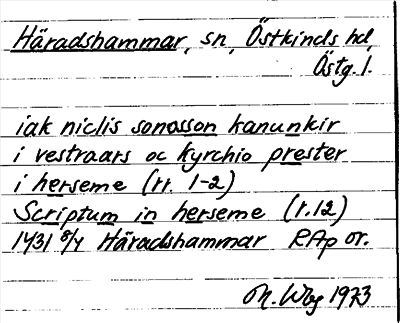 Häradshammar, sn, Östkinds hd,
Östg. l.
iak niclis sonosson kanunkir
i vestraars oc kyrchio prester
i herseme (rr. 1-2)
Scriptum in herseme (r.12)
1431 8/4 Häradshammar RAp or.
M. Wbg 1973